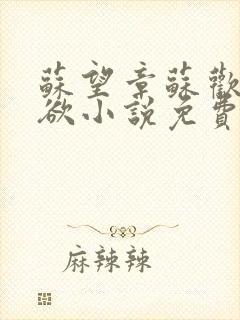 蘇望章蘇歡
欲小說免費
麻辣辣